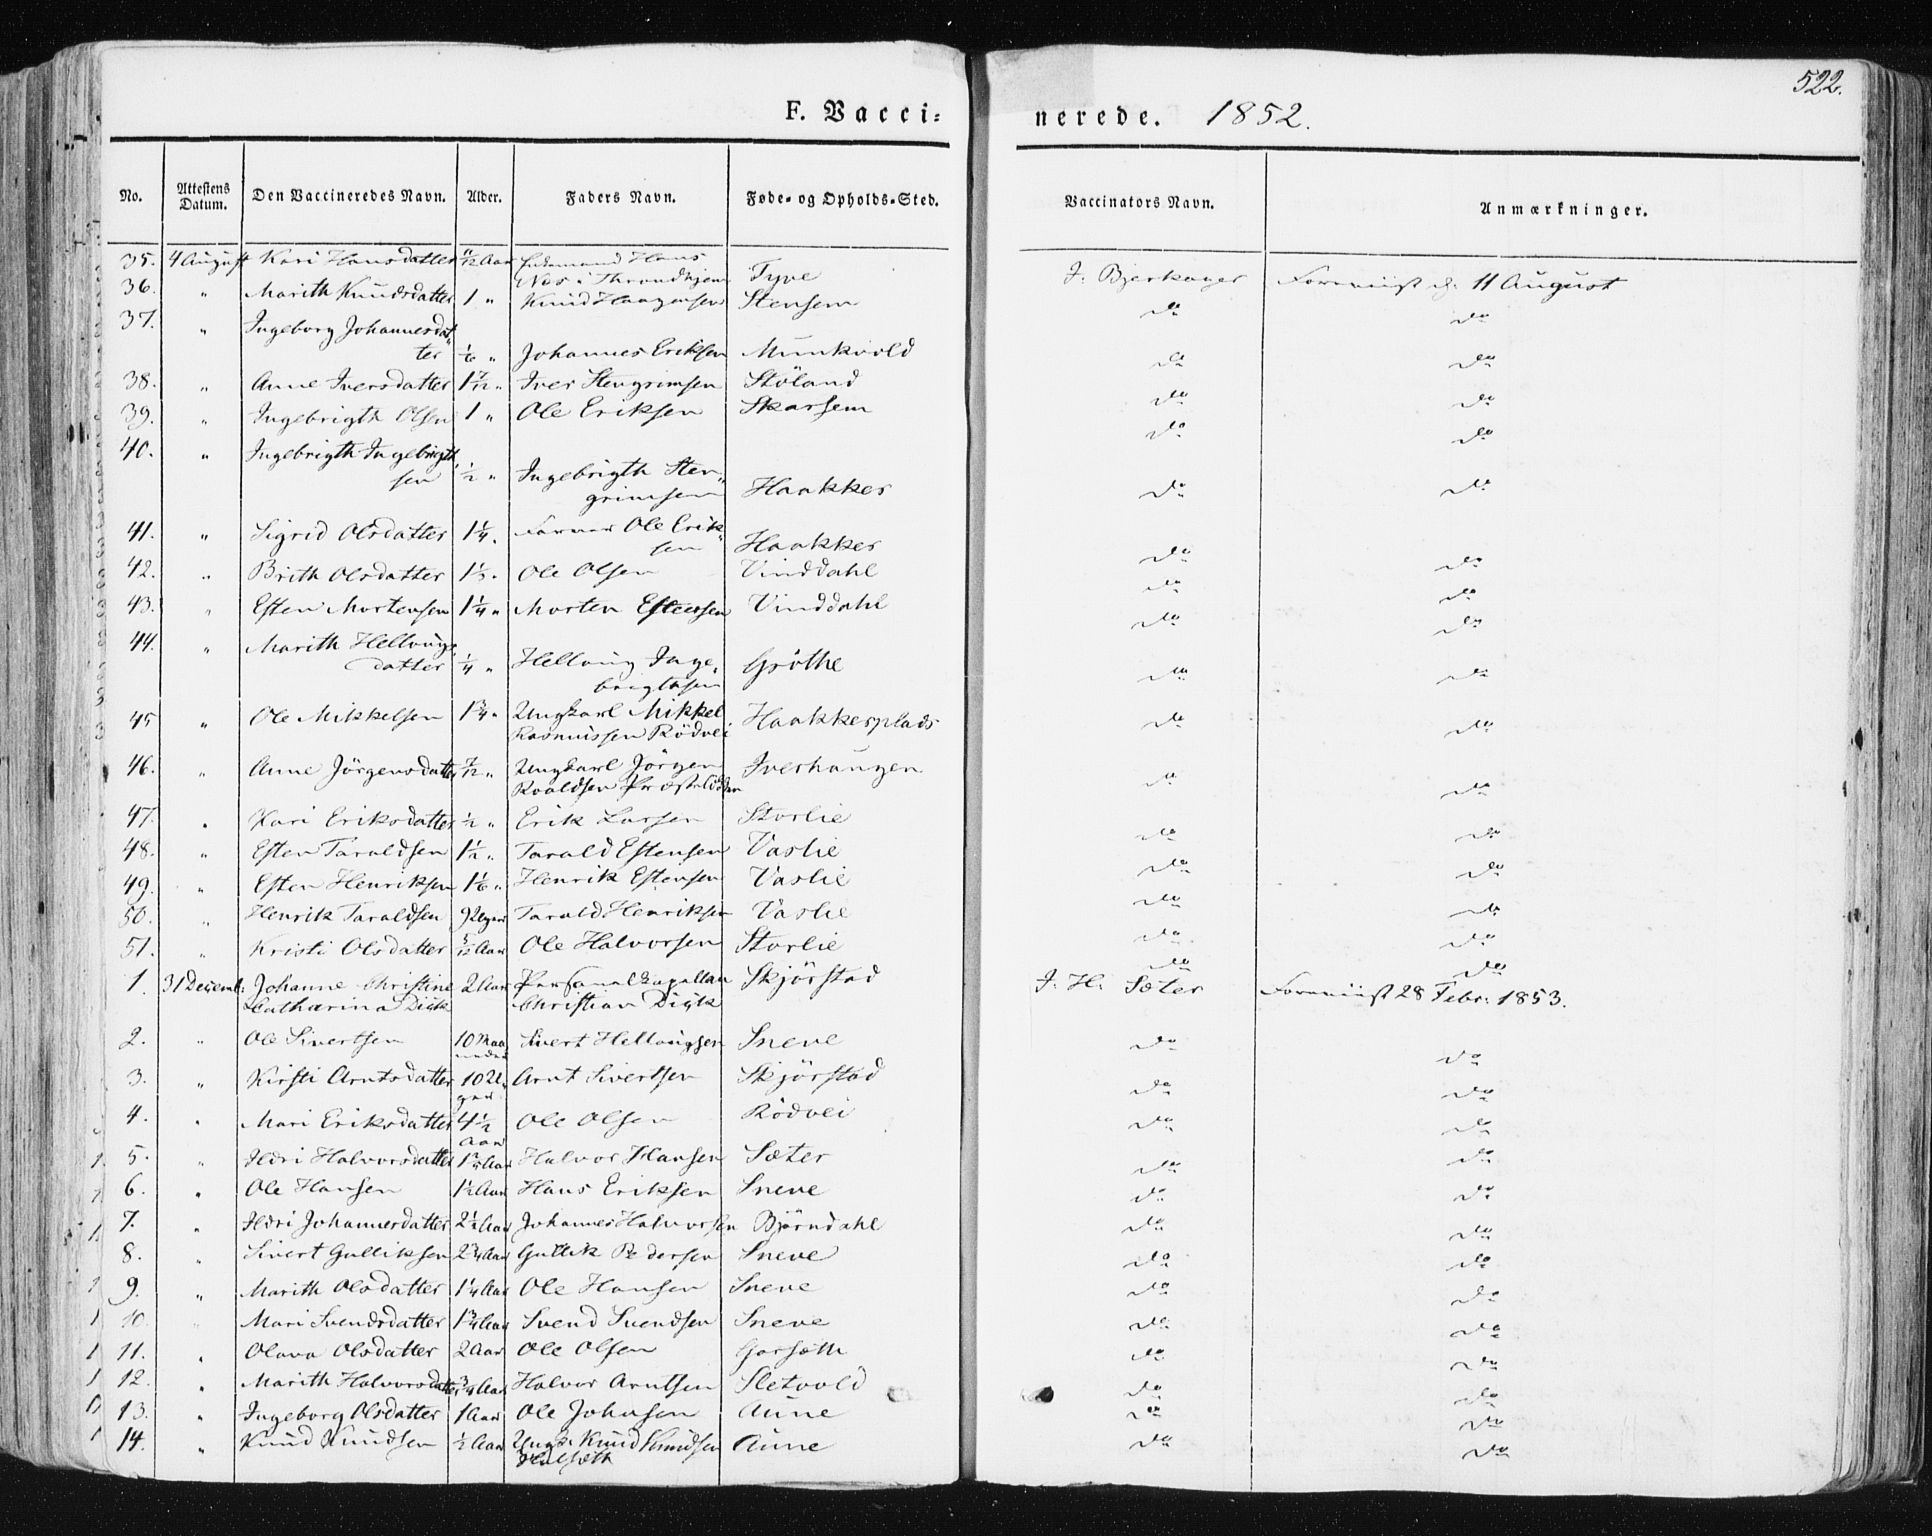 522.
F. Vacci=
nerede. 1852.
No. Attestens Datum. Den Vaccineredes Navn. Alder. Faders Navn. Føde= og Opholds=Sted. Vaccinators Navn. Anmærkninger.
35. 4 August Kari Hansdatter 11/12 Aar Hans Næs i Throndhjem Tyve J: Bjerkager Foreviist d: 11 August
36. " Marith Knudsdatter 1 " Knud Haagensen Stensem do do
37. " Ingeborg Johannesdat„
ter 1/6 " Johannes Eriksen Munkvold do do
38. " Anne Iversdatter 1 7/12 " Iver Stengrimsen Stöland do do
39. " Ingebrigth Olsen 1 " Ole Eriksen Skarsem do do
40. " Ingebrigth Ingebrigth„
sen 1/2 " Ingebrigth Sten„
grimsen Haakker do do
41. " Sigrid Olsdatter 1 1/4 " Ole Erik„
sen Haakker do do
42. " Brith Olsdatter 1 1/3 " Ole Olsen Vinddahl do do
43. " Esten Mortensen 1 1/4 " Morten Estensen Vinddahl do do
44. " Marith Hellaugs„
datter 1/4 " Hellaug Inge„
brigthsen Gröthe do do
45 " Ole Mikkelsen 1 3/4 " Ungkarl Mikkel
Rasmussen Rödvei Haakkesplads do do
46. " Anne Jörgensdatter 7/12 " Ungkarl Jörgen
Roaldsen Iverhaugen do do
47. " Kari Eriksdatter 1/2 " Erik Larsen Storlie do do
48. " Esten Taraldsen 1 1/2 " Tarald Estensen Vaslie do do
49. " Esten Henriksen 1 1/6 " Henrik Estensen Vaslie do do
50. " Henrik Taraldsen 9 Uger Tarald Henriksen Vaslie do do
51. " Kristi Olsdatter 5/12 Aar Ole Halvorsen Storlie do do
1. 31 Decemb: Johanne Christine
Catharina Dick 2 Aar Personalkapellan
Christian Dick Skjörstad J: H: Sæter Foreviist 28 Febr: 1853.
2. " Ole Sivertsen 10 Maa
neder Sivert Hellaugsen Sneve do do
3. " Kirsti Arntsdatter 10 U„
ger Arnt Sivertsen Skjörstad do do
4. " Mari Eriksdatter 4 1/2
Aar Ole Olsen Rödvei do do
5. " Ildri Halvorsdatter 1 3/4 Aar Halvor Hansen Sæter do do
6. " Ole Hansen 1 1/2 Aar Hans Eriksen Sneve do do
7. " Ildri Johannesdatter 2 1/2 Aar Johannes Halvorsen Björndahl do do
8. " Sivert Gulliksen 2 3/4 Aar Gullik Pedersen Sneve do do
9. " Marith Olsdatter 1 1/4 Aar Ole Hansen Sneve do do
10. " Mari Svendsdatter 1 3/4 Aar Svend Svendsen Sneve do do
11. " Olava Olsdatter 2 Aar Ole Olsen Gorsæth do do
12. " Marith Halvorsdatter 3/4 Aar Halvor Arntsen Sletvold do do
13. " Ingeborg Olsdatter 1 Aar Ole Johnsen Aune do do
14. " Knud Knudsen 1/2 Aar Ungk. Knud Knudsen
Aune do do